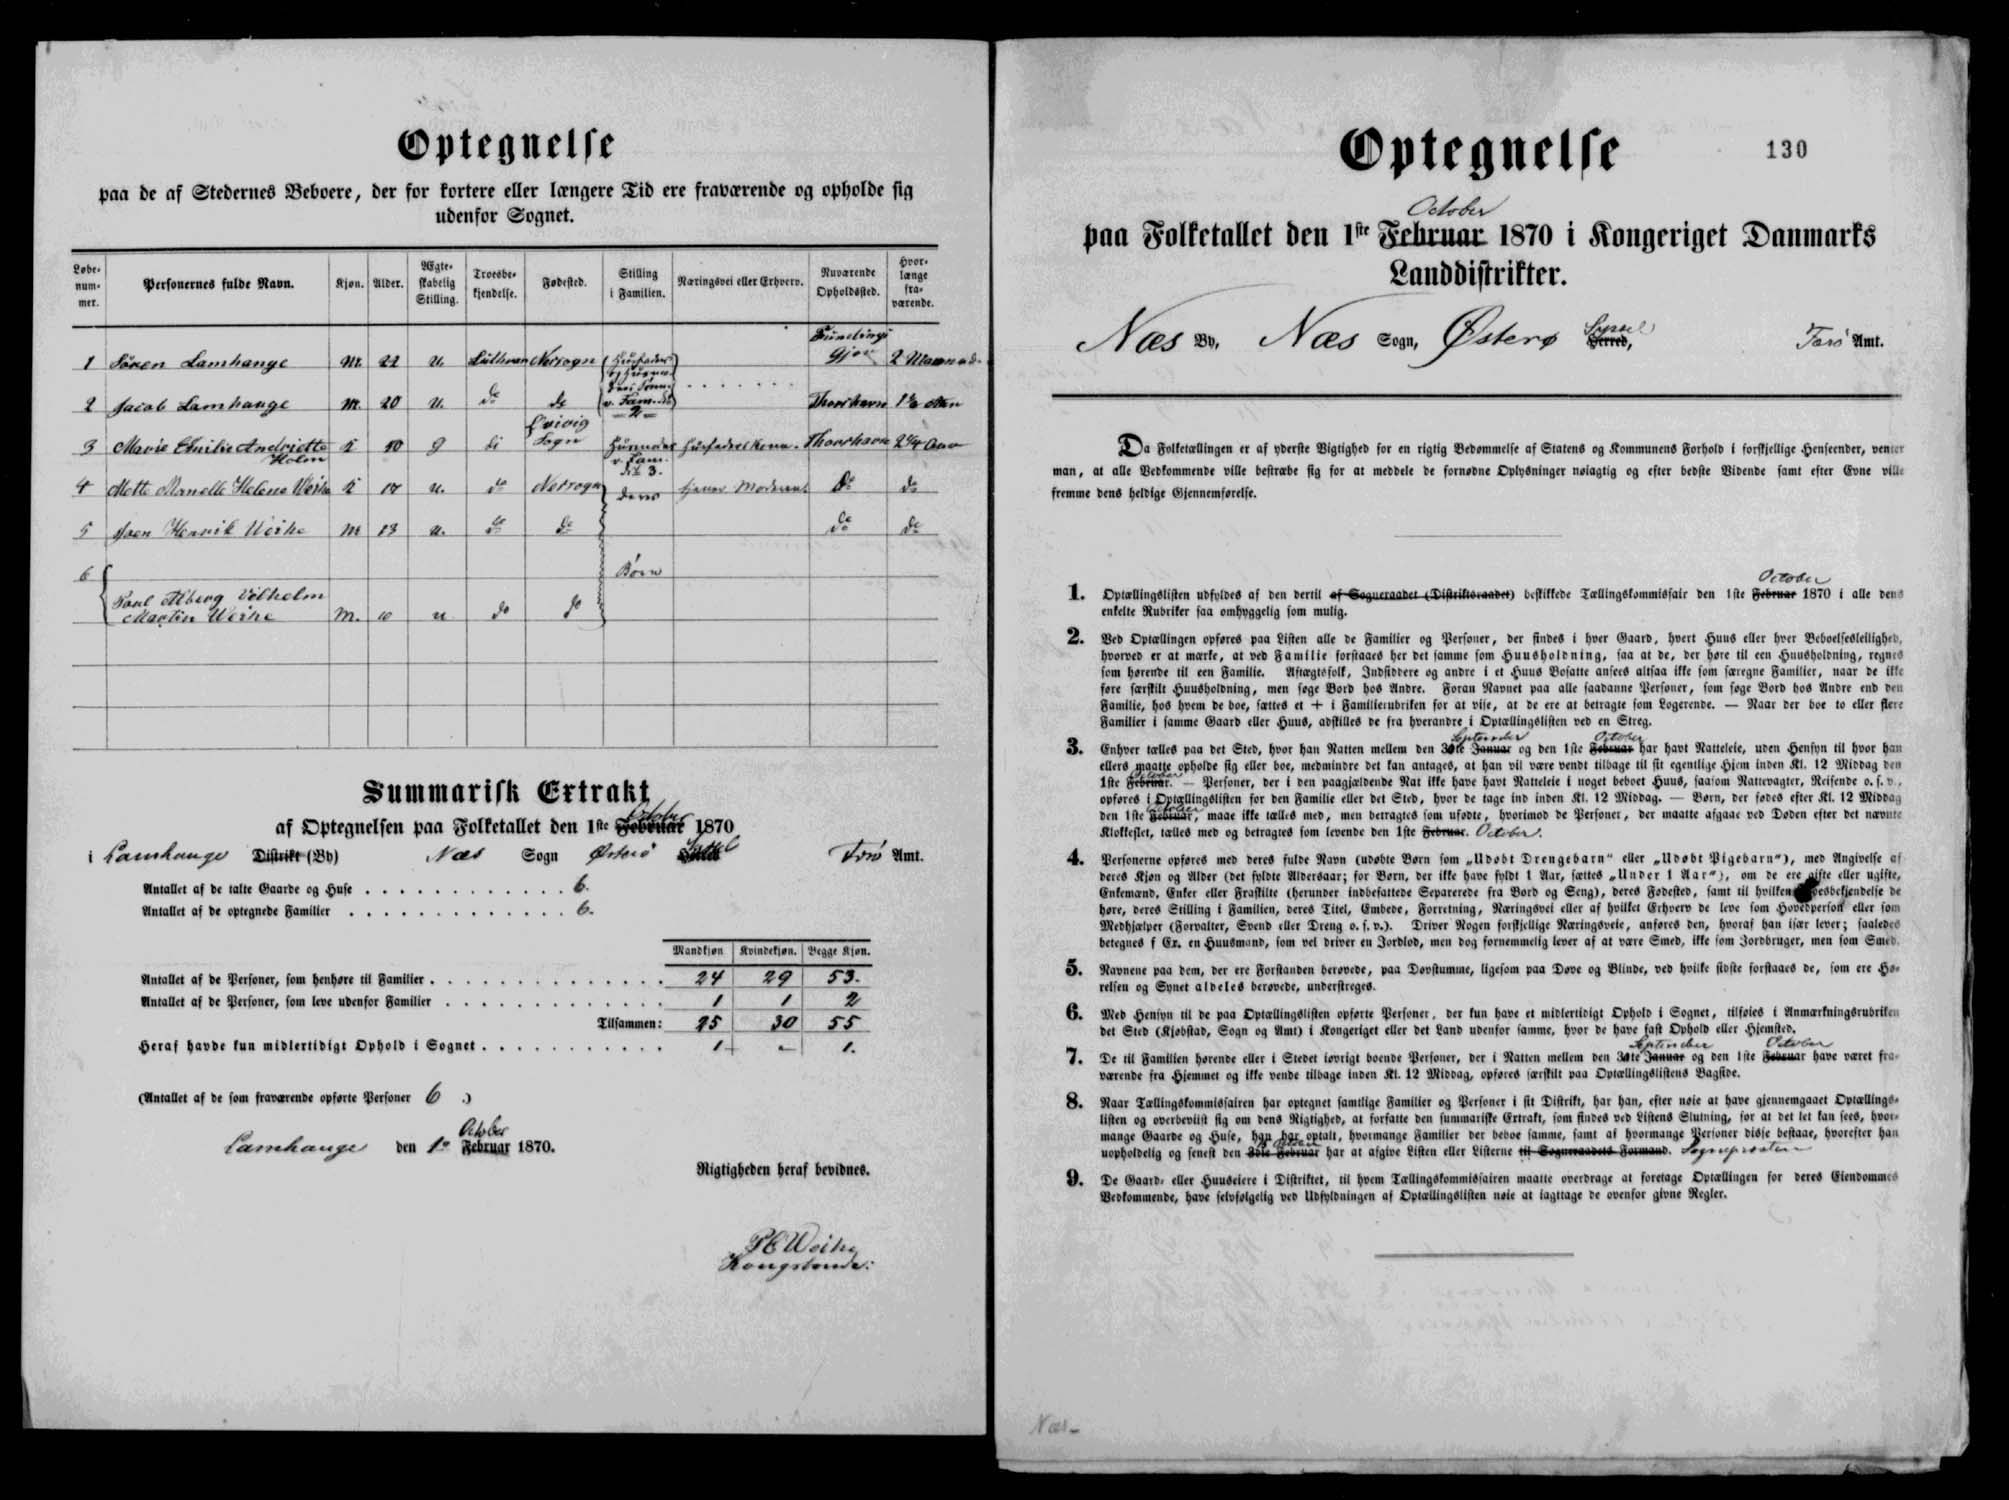 Optegnelse
paa de af Stedernes Beboere, der for kortere eller længere Tid ere fraværende og opholde sig
udenfor Sognet.
Løbe-nummer. Personernes fulde Navn. Kjøn. Alder. Ægteskabelig Stilling. Troesbekjendelse. Fødested. Stilling i Familien. Næringsvei eller Erhverv. Nuværende Opholdssted. Hvorlænge fraværende.
1 Sören Lamhauge M. 22 U. Luthersk Nessogn Gjov 2 Maaneder
2 Jacob Lamhauge M. 20 U. do do Thorshavn
3 Marie Emilie Andriette Holm K g do Qvivig Sogn Husmoder v. Fam. No 3. Husfaders Kone. Thorshavn 2 1/4 Aar
4 Mette Helene Weihe K u. do Nessogn deres do do
5 Joen Henrik Weihe M 13 u. do do do do
6 Poul Vilhelm
Martin Weihe M. 10 u do do Børn
Summarisk Extrakt
October
af Optegnelsen paa Folketallet den 1ste Februar 1870
i Lamhauge Distrikt (By) Næs Sogn Österö Syssel Færö Amt.
Antallet af de talte Gaarde og Huse . . . . . . . . . . . . . 6.
Antallet af de optegnede Familier . . . . . . . . . . . . . 6.
Mandkjøn Kvindekjøn. Begge Kjøn.
Antallet af de Personer, som henhøre til Familier . . . . . . . . . . . . . . 24 29 53.
Antallet af de Personer, som leve udenfor Familier . . . . . . . . . . . . . 1 1 2
Tilsammen: 25 30 55
Heraf havde kun midlertidigt Ophold i Sognet . . . . . . . . . . . 1 - 1.
(Antallet af de som fraværende opførte Personer 6 .)
October
Lamhauge den 1e Februar 1870.
Rigtigheden heraf bevidnes.
Weihe
Kongsbonde.
Optegnelse 130
October
paa Folketallet den 1ste Februar 1870 i Kongeriget Danmarks
Landdistrikter.
Syssel
Næs By, Næs Sogn, Østerø Herred, Færö Amt.
Da Folketællingen er af yderste Vigtighed for en rigtig Bedømmelse af Statens og Kommunens Forhold i forskjellige Henseender, venter
man, at alle Vedkommende ville bestræbe sig for at meddele de fornødne Oplysninger nøiagtig og efter bedste Vidende samt efter Evne ville
fremme dens heldige Gjennemførelse.
October
1. Optællingslisten udfyldes af den dertil af Sogneraadet (Distriktsraadet) beskikkede Tællingskommissair den 1ste Februar 1870 i alle dens
enkelte Rubriker saa omhyggelig som mulig.
2. Ved Optællingen opføres paa Listen alle de Familier og Personer, der findes i hver Gaard, hvert Huus eller hver Beboelsesleilighed,
hvorved er at mærke, at ved Familie forstaaes her det samme som Huusholdning, saa at de, der høre til een Huusholdning, regnes
som hørende til een Familie. Aftægtsfolk, Indsiddere og andre i et Huus Bosatte ansees altsaa ikke som særegne Familier, naar de ikke
føre særskilt Huusholdning, men søge Bord hos Andre. Foran Navnet paa alle saadanne Personer, som søge Bord hos Andre end den
Familie, hos hvem de boe, sættes et + i Familierubriken for at vise, at de ere at betragte som Logerende. — Naar der boe to eller flere
Familier i samme Gaard eller Huus, adskilles de fra hverandre i Optællingslisten ved en Streg.
September October
3. Enhver tælles paa det Sted, hvor han Natten mellem den 30te Januar og den 1ste Februar har havt Natteleie, uden Hensyn til hvor han
ellers maatte opholde sig eller boe, medmindre det kan antages, at han vil være vendt tilbage til sit egentlige Hjem inden Kl. 12 Middag den
October
1ste Februar. — Personer, der i den paagjældende Nat ikke have havt Natteleie i noget beboet Huus, saasom Nattevagter, Reisende o. s. v.,
opføres i Optællingslisten for den Familie eller det Sted, hvor de tage ind inden Kl. 12 Middag. — Børn, der fødes efter Kl. 12 Middag
October
den 1ste Februar, maae ikke tælles med, men betragtes som ufødte, hvorimod de Personer, der maatte afgaae ved Døden efter det nævnte
Klokkeslet, tælles med og betragtes som levende den 1ste Februar. October.
4. Personerne opføres med deres fulde Navn (udøbte Børn som „Udøbt Drengebarn“ eller „Udøbt Pigebarn“), med Angivelse af
deres Kjøn og Alder (det fyldte Aldersaar; for Børn, der ikke have fyldt 1 Aar, sættes „Under 1 Aar“), om de ere gifte eller ugifte,
Enkemænd, Enker eller Fraskilte (herunder indbefattede Separerede fra Bord og Seng), deres Fødested, samt til hvilken Troesbekjendelse de
høre, deres Stilling i Familien, deres Titel, Embede, Forretning, Næringsvei eller af hvilket Erhverv de leve som Hovedperson eller som
Medhjælper (Forvalter, Svend eller Dreng o. s. v.). Driver Nogen forskjellige Næringsveie, anføres den, hvoraf han især lever; saaledes
betegnes f Ex. en Huusmand, som vel driver en Jordlod, men dog fornemmelig lever af at være Smed, ikke som Jordbruger, men som Smed.
5. Navnene paa dem, der ere Forstanden berøvede, paa Døvstumme, ligesom paa Døve og Blinde, ved hvilke sidste forstaaes de, som ere Hø-
relsen og Synet aldeles berøvede, understreges.
6. Med Hensyn til de paa Optællingslisten opførte Personer, der kun have et midlertidigt Ophold i Sognet, tilføies i Anmærkningsrubriken
det Sted (Kjøbstad, Sogn og Amt) i Kongeriget eller det Land udenfor samme, hvor de have fast Ophold eller Hjemsted.
September October
7. De til Familien hørende eller i Stedet iøvrigt boende Personer, der i Natten mellem den 30te Januar og den 1ste Februar have været fra-
værende fra Hjemmet og ikke vende tilbage inden Kl. 12 Middag, opføres særskilt paa Optællingslistens Bagside.
8. Naar Tællingskommissairen har optegnet samtlige Familier og Personer i sit Distrikt, har han, efter nøie at have gjennemgaaet Optællings-
listen og overbeviist sig om dens Rigtighed, at forfatte den summariske Extrakt, som findes ved Listens Slutning, for at det let kan sees, hvor-
mange Gaarde og Huse, han har optalt, hvormange Familier der beboe samme, samt af hvormange Personer disse bestaae, hvorefter han
October
uopholdelig og senest den 3die Februar har at afgive Listen eller Listerne til Sogneraadets Formand. Sognepræsten
9. De Gaard- eller Huuseiere i Distriktet, til hvem Tællingskommissairen maatte overdrage at foretage Optællingen for deres Eiendommes
Vedkommende, have selvfølgelig ved Udfyldningen af Optællingslisten nøie at iagttage de ovenfor givne Regler.
Næs-